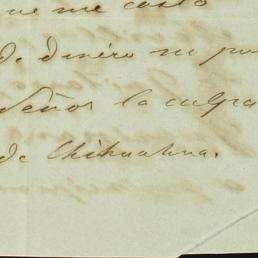 que me costo
de dinero no pu
Señor la culpa
de Chihuahua.